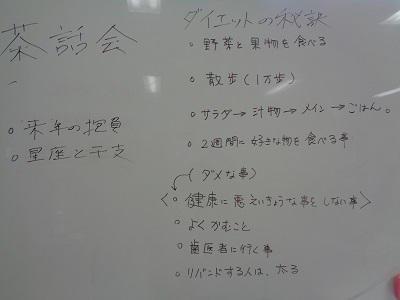 茶話会
来年の抱負
星座と干支
ダイエットの秘訣
野菜と果物を食べる
散歩(1万歩)
サラダ→汁物→メイン→ごはん。
2週間に好きな物を食べる事
(ダメな事)
健康に悪えいきょうな事をしない事
よくかむこと
歯医者に行く事
リバンドする人は、太る